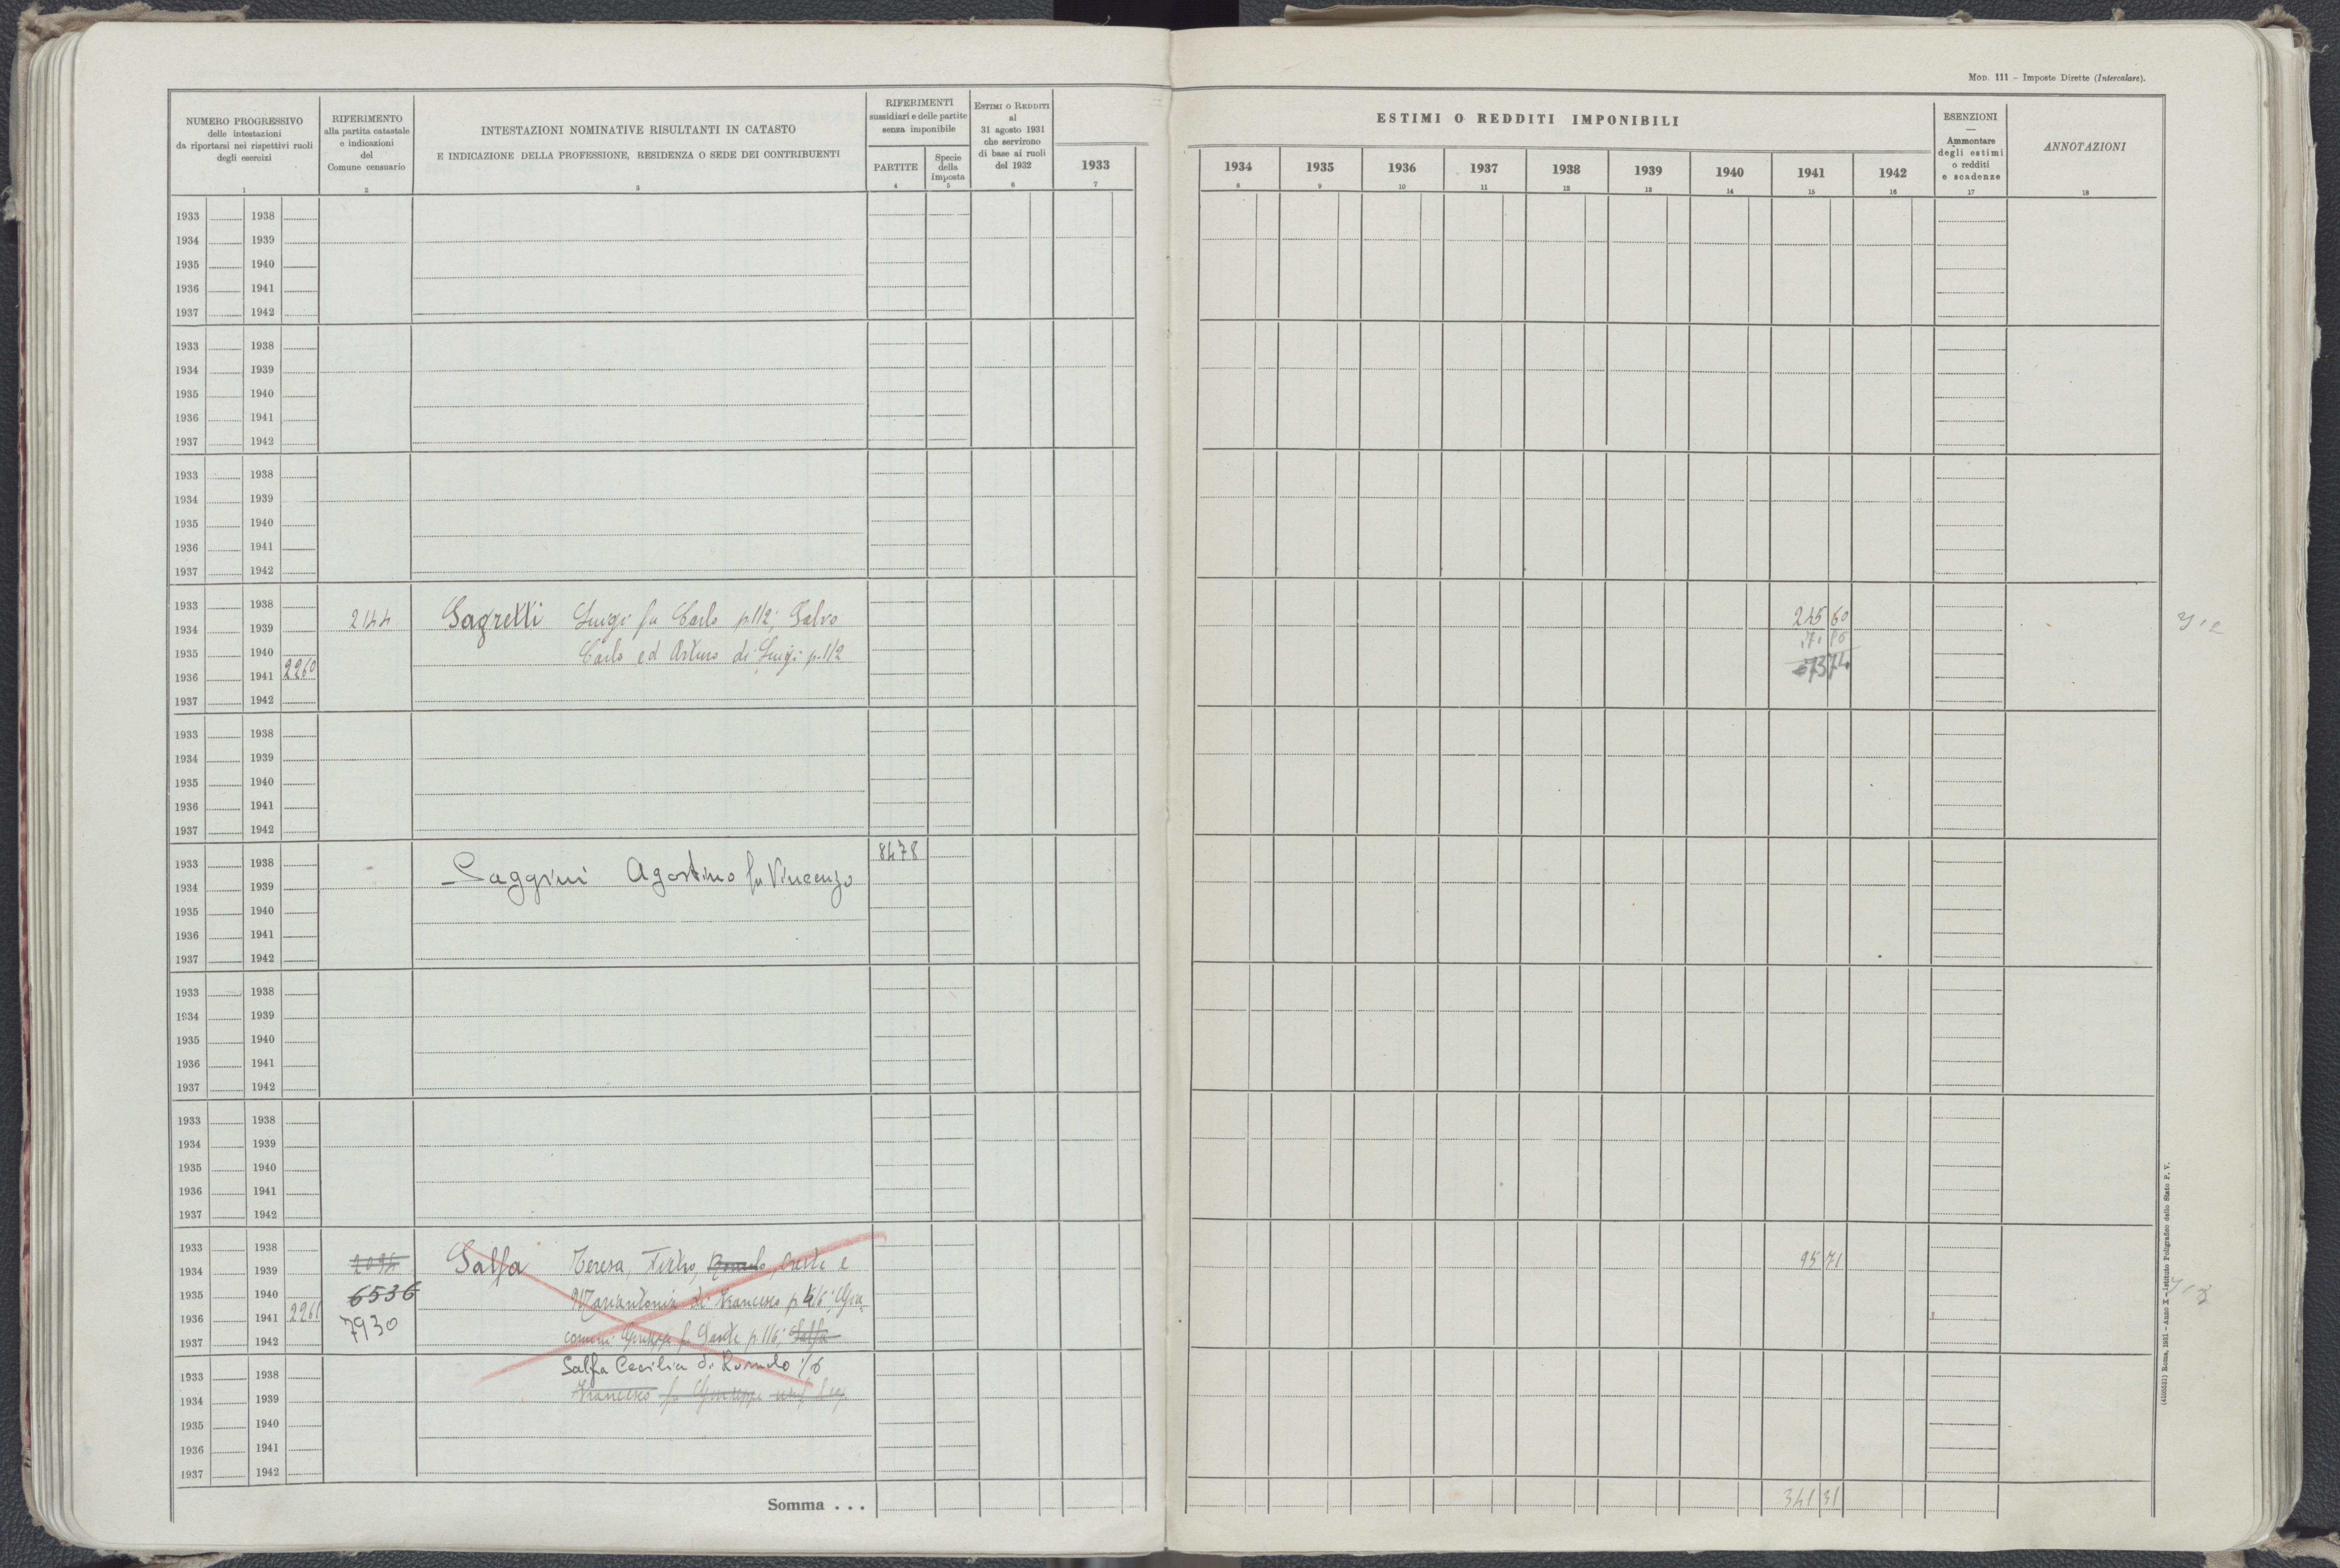 MOD. 111 – Imposte Dirette (Intercalare).
NUMERO PROGRESSIVO
delle intestazioni
da riportarsi nei rispettivi ruoli
degli esercizi
1
RIFERIMENTO
alla partita catastale
e indicazioni
del
Comune censuario
2
INTESTAZIONI NOMINATIVE RISULTANTI IN CATASTO
E INDICAZIONE DELLA PROFESSIONE, RESIDENZA O SEDE DEI CONTRIBUENTI
3
RIFERIMENTI
sussidiari e delle partite
senza imponibile
PARTITE
4
Specie
della
imposta
5
ESTIMI O REDDITI
al
31 agosto 1931
che servirono
di base ai ruoli
del 1932
6
ESTIMI O REDDITI IMPONIBILI
1933 1934 1935 1936 1937 1938 1939 1940 1941 1942
7 8 9 10 11 12 13 14 15 16
ESENZIONI
—
Ammontare
degli estimi
o redditi
e scadenze
17
ANNOTAZIONI
18
1933 1938
1934 1939
1935 1940
1936 1941
1937 1942
1933 1938
1934 1939
1935 1940
1936 1941
1937 1942
1933 1938
1934 1939
1935 1940
1936 1941
1937 1942
1933 1938
1934 1939 2144 Sagretti Luigi fu Carlo p. 1/2; Salvo 245 60
1935 1940 Carlo ed Arturo di Luigi p. 1/2
1936 1941 2260
1937 1942
1933 1938
1934 1939
1935 1940
1936 1941
1937 1942
1933 1938 8478
1934 1939 Saggini Agostino fu Vincenzo
1935 1940
1936 1941
1937 1942
1933 1938
1934 1939
1935 1940
1936 1941
1937 1942
1933 1938
1934 1939
1935 1940
1936 1941
1937 1942
1933 1938
1934 1939 Salfa Teresa, Romolo, Oreste e 95 71
1935 1940 6536 Mariantonia di Francesco p. 4/6; Gia
1936 1941 2261 7930
1937 1942 comini Giuseppe fu Sante p. 1/6; Salfa
1933 1938 Salfa Cecilia di Romolo 1/6
1934 1939 Francesco fu Giuseppe usuf.
1935 1940
1936 1941
1937 1942
Somma . . . 341 31
(4100521) Roma, 1931 – Anno X – Istituto Poligrafico dello Stato P. V.